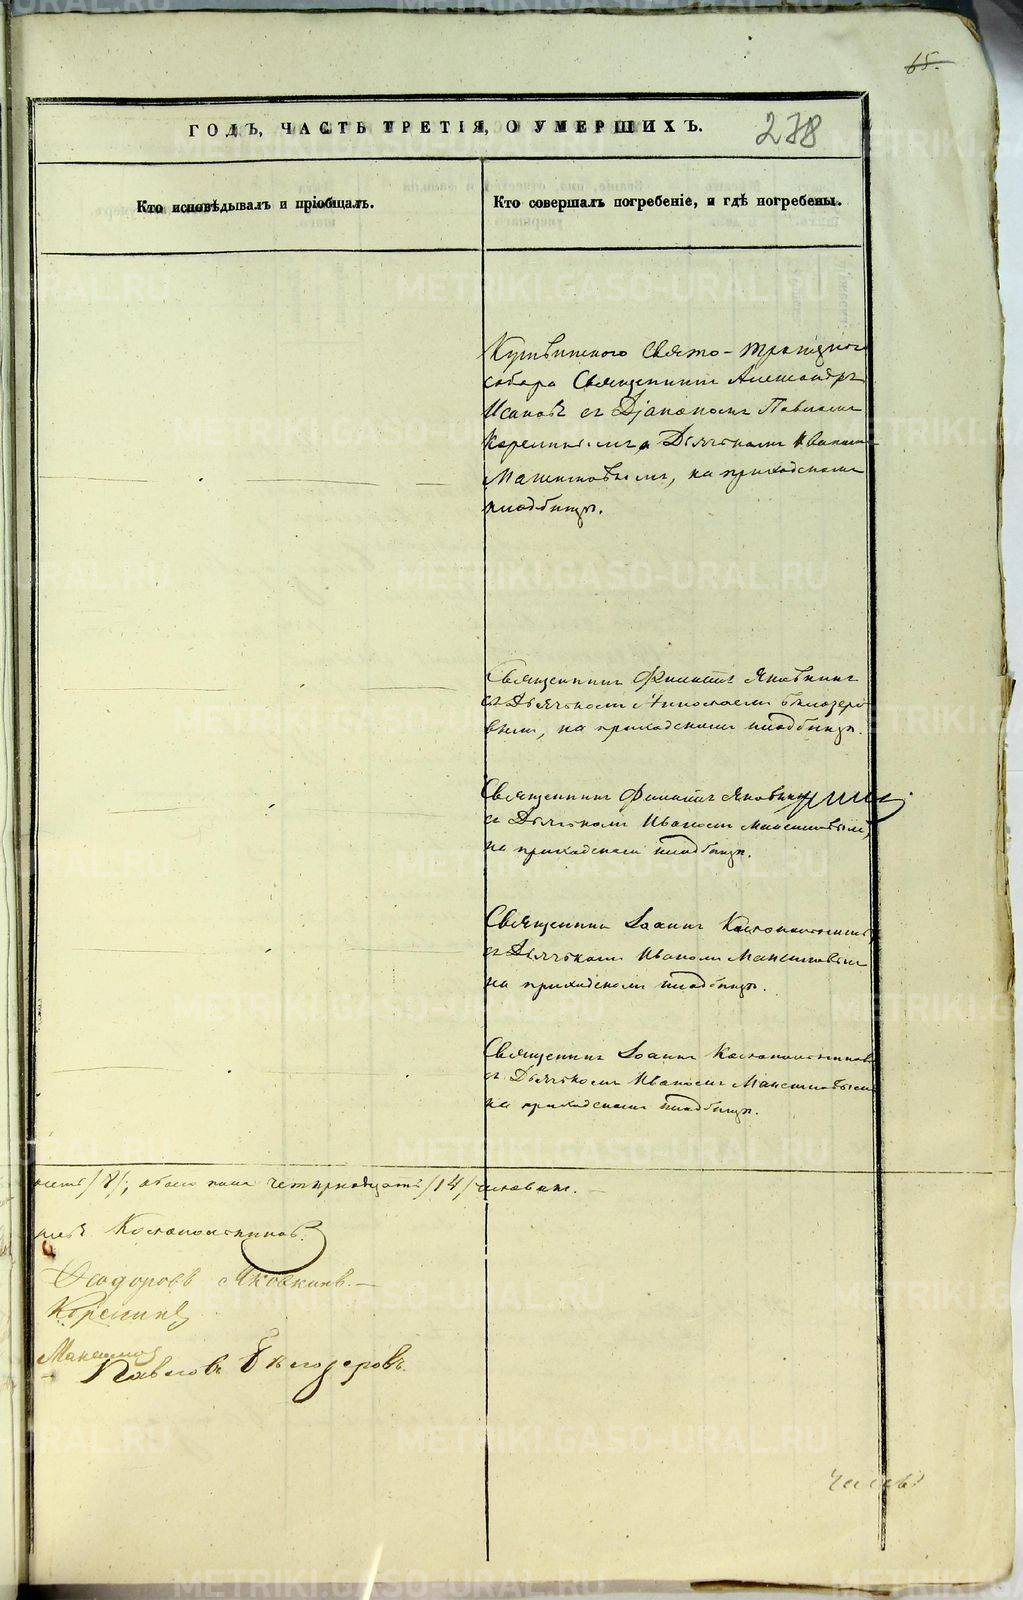 65.
ГОДЪ, ЧАСТЬ ТРЕТІЯ, О УМЕРШИХЪ.
278
Кто исповѣдывалъ и пріобщалъ.
Кто совершалъ погребеніе, и гдѣ погребены.
Свято-Троицкаго
собора Священникъ Александръ
съ Діакономъ Павломъ
Дьячкомъ Иваномъ
Максимовымъ, на приходскомъ
кладбищѣ.
Священникъ Филиппъ Яковкинъ
съ Дьячкомъ Николаемъ Бѣлозеро
вымъ, на приходскомъ кладбищѣ.
Священникъ Филиппъ Яковкинъ
съ Дьячкомъ Иваномъ Максимовымъ,
на приходскомъ кладбищѣ.
Священникъ Іоаннъ
съ Дьячкомъ Иваномъ Максимовым
на приходскомъ кладбищѣ.
Священникъ Іоаннъ
съ Дьячкомъ Иваномъ Максимовымъ
на приходскомъ кладбищѣ.
/8/, обоего пола четырнадцать /14/ человѣкъ.
Ѳедоровъ Яковкинъ.
Максимов
Павловъ Бѣлозеровъ.
METRIKI.GASO-URAL.RU